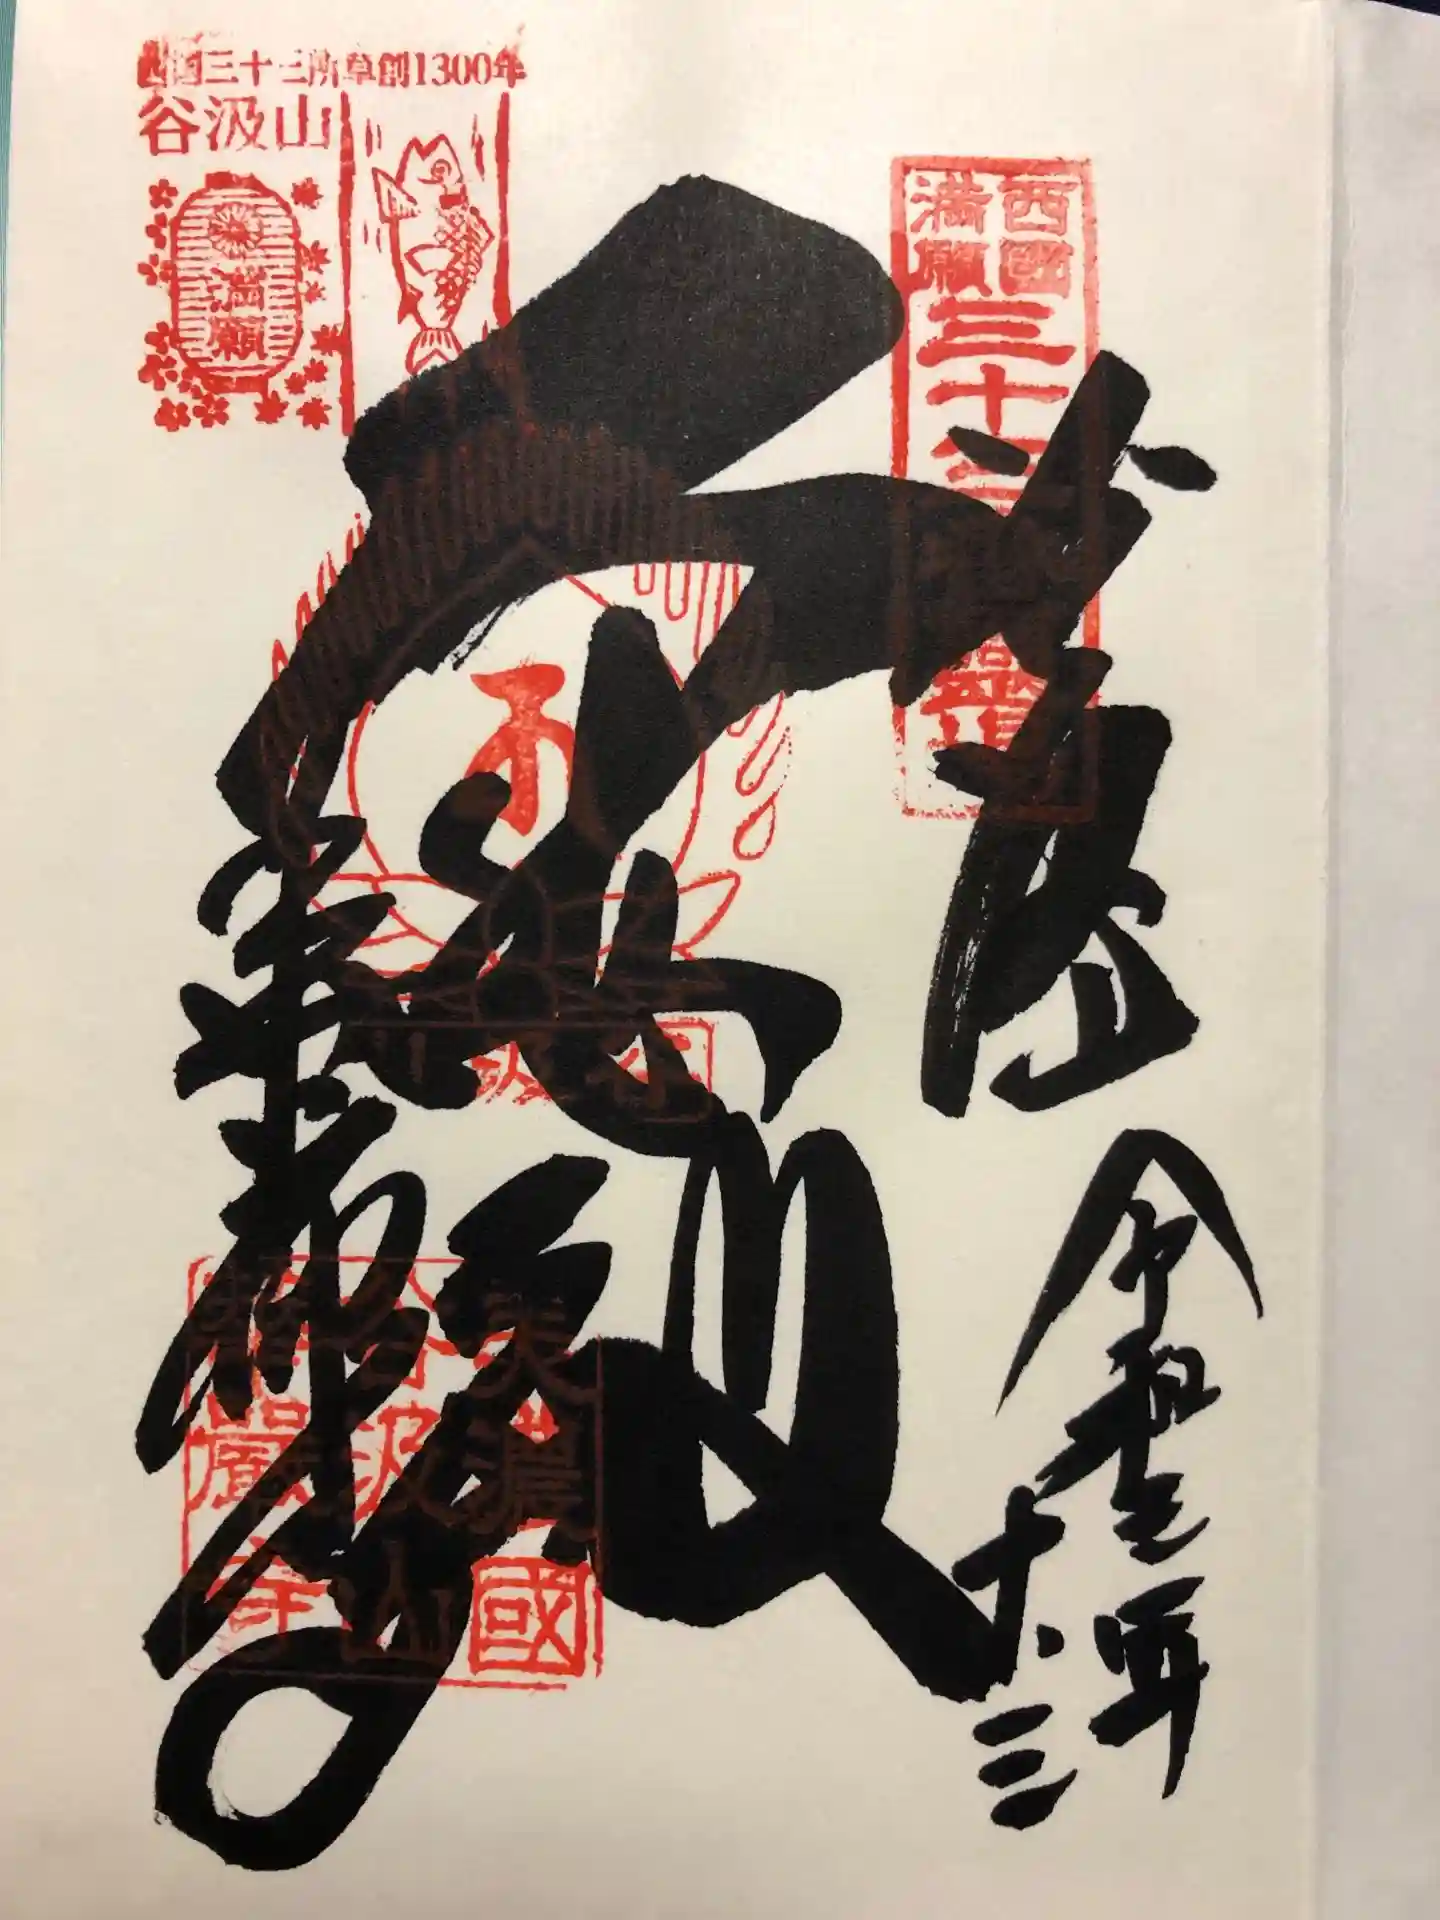 西国三十三所草創1300年
谷汲山
満願
西國
満願
三十三
大悲殿
令和元年
十・三
華厳寺
美濃國
谷汲山
華嚴寺